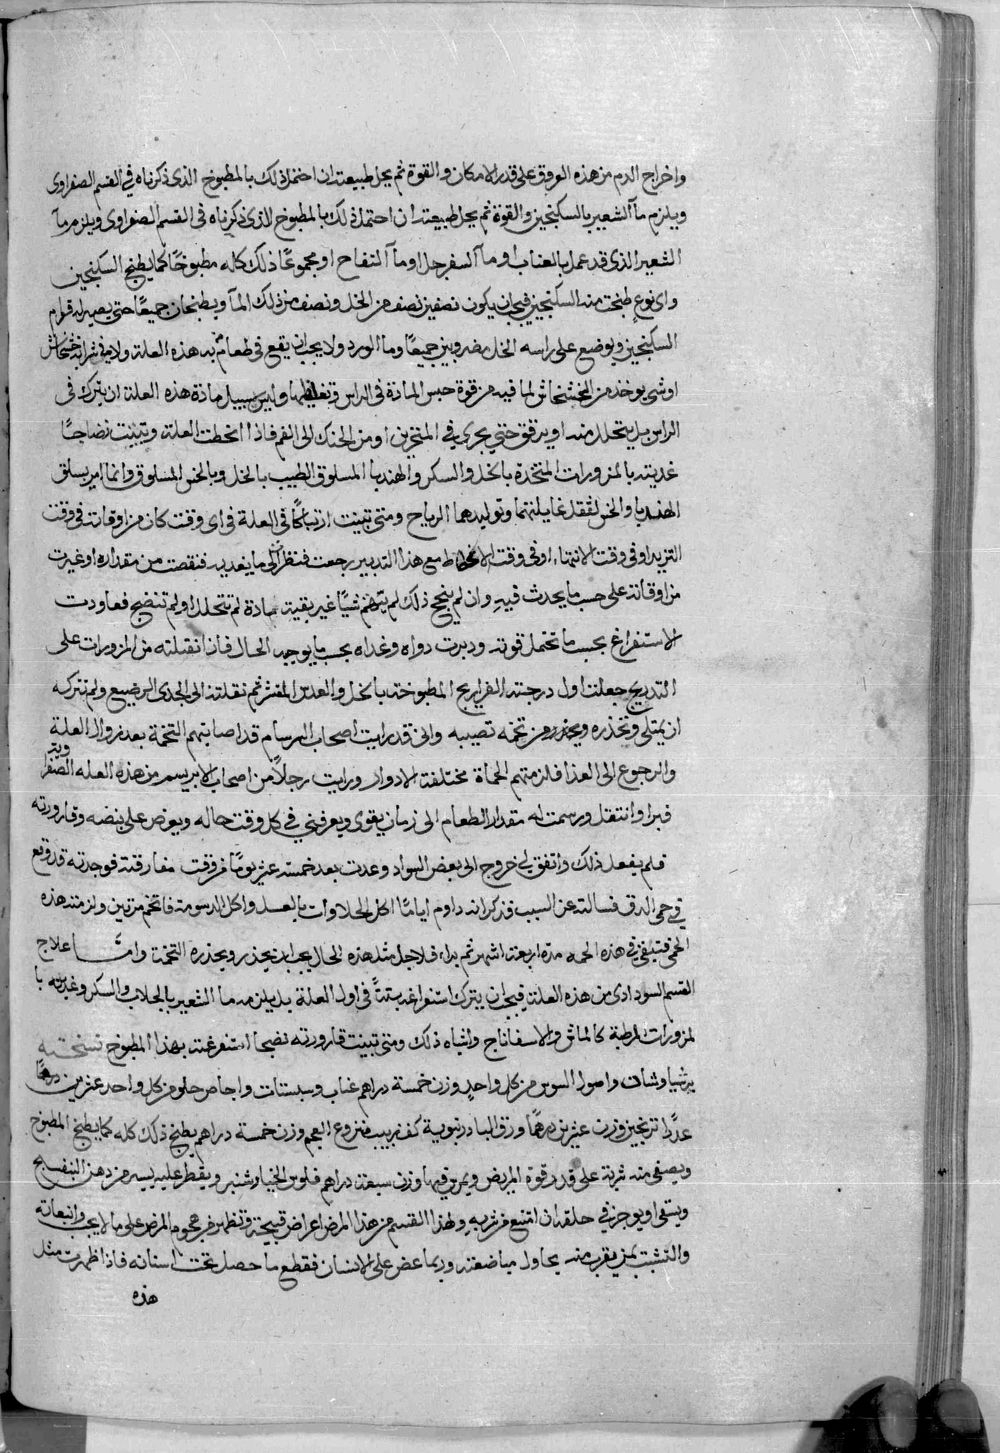 واخراج الدم من هذه العروق على قدر الامكان والقوة ثم يحل طبيعته ان احتمل ذلك بالمطبوخ الذى ذكرناه في القسم الصفراوى
ويلزم مآ الشعير بالسكنجبين والقوة ثم يحل طبيعته ان احتمل ذلك بالمطبوخ الذى ذكرناه فى القسم الصفراوى ويلزم مآ
الشعير الذى قد عمل بالعناب او مآ السفرجل او مآ التفاح او مجموعًا ذلك كله مطبوخًا كما يطبخ السكنجبين
واى نوع طبخت منه السكنجبين فيجب ان يكون نصفين نصف من الخل ونصف من ذلك المآ ويطبخان جميعًا حتى يصير له قوام
السكنجبين ويوضع على راسه الخل مضروبين جميعًا وما الورد ولا يجب ان يقع فى طعام من به هذه العلة ولا فى شرابه خشخاش
او شى يوخذ من الخشخاش لما فيه من قوة حبس المادة فى الراس وتغليظها وليس سبيل مادة هذه العلة ان يترك فى
الراس بل يتحلل منه او يرقق حتى يجرى في المنخرين او من الحنك الى الفم فاذا انحطت العلة وتبينت نضاجًا
غديته بالمزورات المتخذة بالخل والسكر والهندبا المسلوق الطيب بالخل وبالخس المسلوق وانما امر بسلق
الهندبا والخس لثقل غايلتهما وتوليدهما الرياح ومتى تبينت ارتباكًا فى العلة فى اى وقت كان من اوقاته فى وقت
التزيد او فى وقت الانتهاء او فى وقت الانحطاط مع هذا التدبير رجعت فنظرت الى ما يغديه فنقصت من مقداره او غيرت
من اوقاته على حسب ما يحدث فيه وان لم ينجح ذلك لم يتهم شيًا غير بقية مادة لم تتحلل او لم تنضج فعاودت
الاستفراغ بحسب ما تحتمل قوته ودبرت دواه وغداه بحسب ما يوجبه الحال فاذا نقلته من المزورات على
التدريج جعلت اول درجته الفراريج المطبوخة بالخل والعدس المقشر ثم نقلته الى الجدى الرضيع ولم تتركه
ان يمتلى وتحذره ويحذر من تخمه تصيبه وانى قد رايت اصحاب البرسام قد اصابتهم التخمة بعد زوال العلة
والرجوع الى الغدا فلزمتهم الحماة مختلفة الادوار ورايت رجلاً من اصحاب الابريسم من هذه العله الصفراوية
فبرا وانتقل ورسمت له مقدار الطعام الى زمان يقوى ويعرفنى في كل وقت حاله ويعرض على نبضه وقارورته
فلم يفعل ذلك واتفق لى خروج الى بعض السواد وعدت بعد خمسة عشر يومًا من وقت مفارقته فوجدته قد وقع
في حمى الدق فسالته عن السبب فذكر انه داوم ايامًا اكل الحلاوات بالعسل واكل الدسومة فاتخم مرتين ولزمته هذه
الحمى فتبقى في هذه الحمه مدة اربعة اشهر ثم براء فلاجل مثل هذه الحال يجب ان يحذر ويحذره التخمة وامّا علاج
القسم السوداوى من هذه العلة فيجب ان يترك استفراغه بتتًّا فى اول العلة بل يلزمه ما الشعير بالجلاب والسكر وغديه با
لمزورات المرطبة كالماش والاسفاناج واشباه ذلك ومتى تبينت قارورته نضجا استفرغته بهذا المطبوخ نسخته
برشياوشان واصول السوس من كل واحد وزن خمسة دراهم عناب وسبستان واجاص حلو من كل واحد عشرين درهمًا
عددًا ترنجبين وزن عشرين درهمًا ورق البادرنبوية كف زبيب منزوع العجم وزن خمسة دراهم يطبخ ذلك كله كما يطبخ المطبوخ
ويصفى منه شربة على قدر قوة المريض ويمرق فيها وزن سبعة دراهم فلوس الخيارشنبر ويقطر عليه يسير من دهن البنفسج
ويسقى او يوجز في حلقه ان امتنع من شربه ولهذا القسم من هذا المرض اعراض قبيحة وتظهر من هجوم المرض على ما لا يجب وانبعاثه
والتشبث بمن يقرب منه يحاول مباضعته وربما عض على الانسان فقطع ما حصل تحت اسنانه فاذا ظهرت مثل
هذه